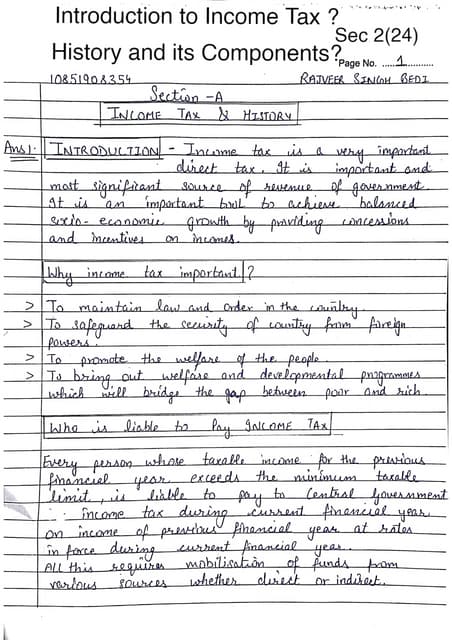 Introduction to Income Tax ?
Sec 2(24)
History and its Components?
Page No. .....1..........
10851908354
RAJVEER SINGH BEDI
Section -A
INCOME TAX & HISTORY
Ans1. INTRODUCTION - Income tax is a very important
direct tax. It is important and
most significant source of revenue of government.
It is an important tool to achieve balanced
socio-economic growth by providing concessions
and incentives on incomes.
Why income tax important ?
> To maintain law and order in the country
> To safeguard the security of country from foreign
powers.
> To promote the welfare of the people.
> To bring out welfare and developmental programmes
which will bridge the gap between poor and rich.
Who is liable to Pay INCOME TAX
Every person whose taxable income for the previous
financial year exceeds the minimum taxable
limit, is liable to pay to Central Government
income tax during current financial year
on income of previous financial year at rates
in force during current financial year.
All this requires mobilisation of funds from
various sources whether direct or indirect.